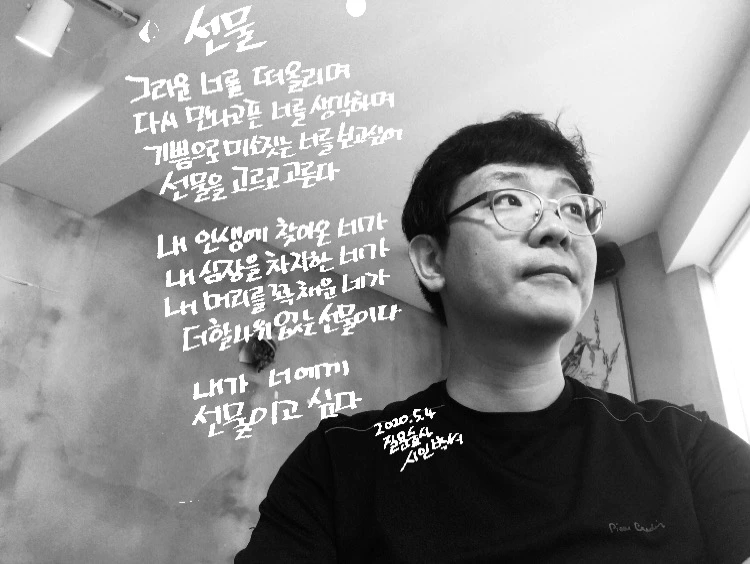 선물
그리운 너를 떠올리며
다시 만나고픈 너를 생각하며
기쁨으로 미소짓는 너를 보고싶어
선물을 고르고 고른다
내 인생에 찾아온 네가
내 심장을 차지한 네가
내 머리를 꼭 채운 네가
더할나위없는 선물이다
내가 너에게
선물이고 싶다
2020.5.4
질문술사
시인박씨
Pierre Cardin